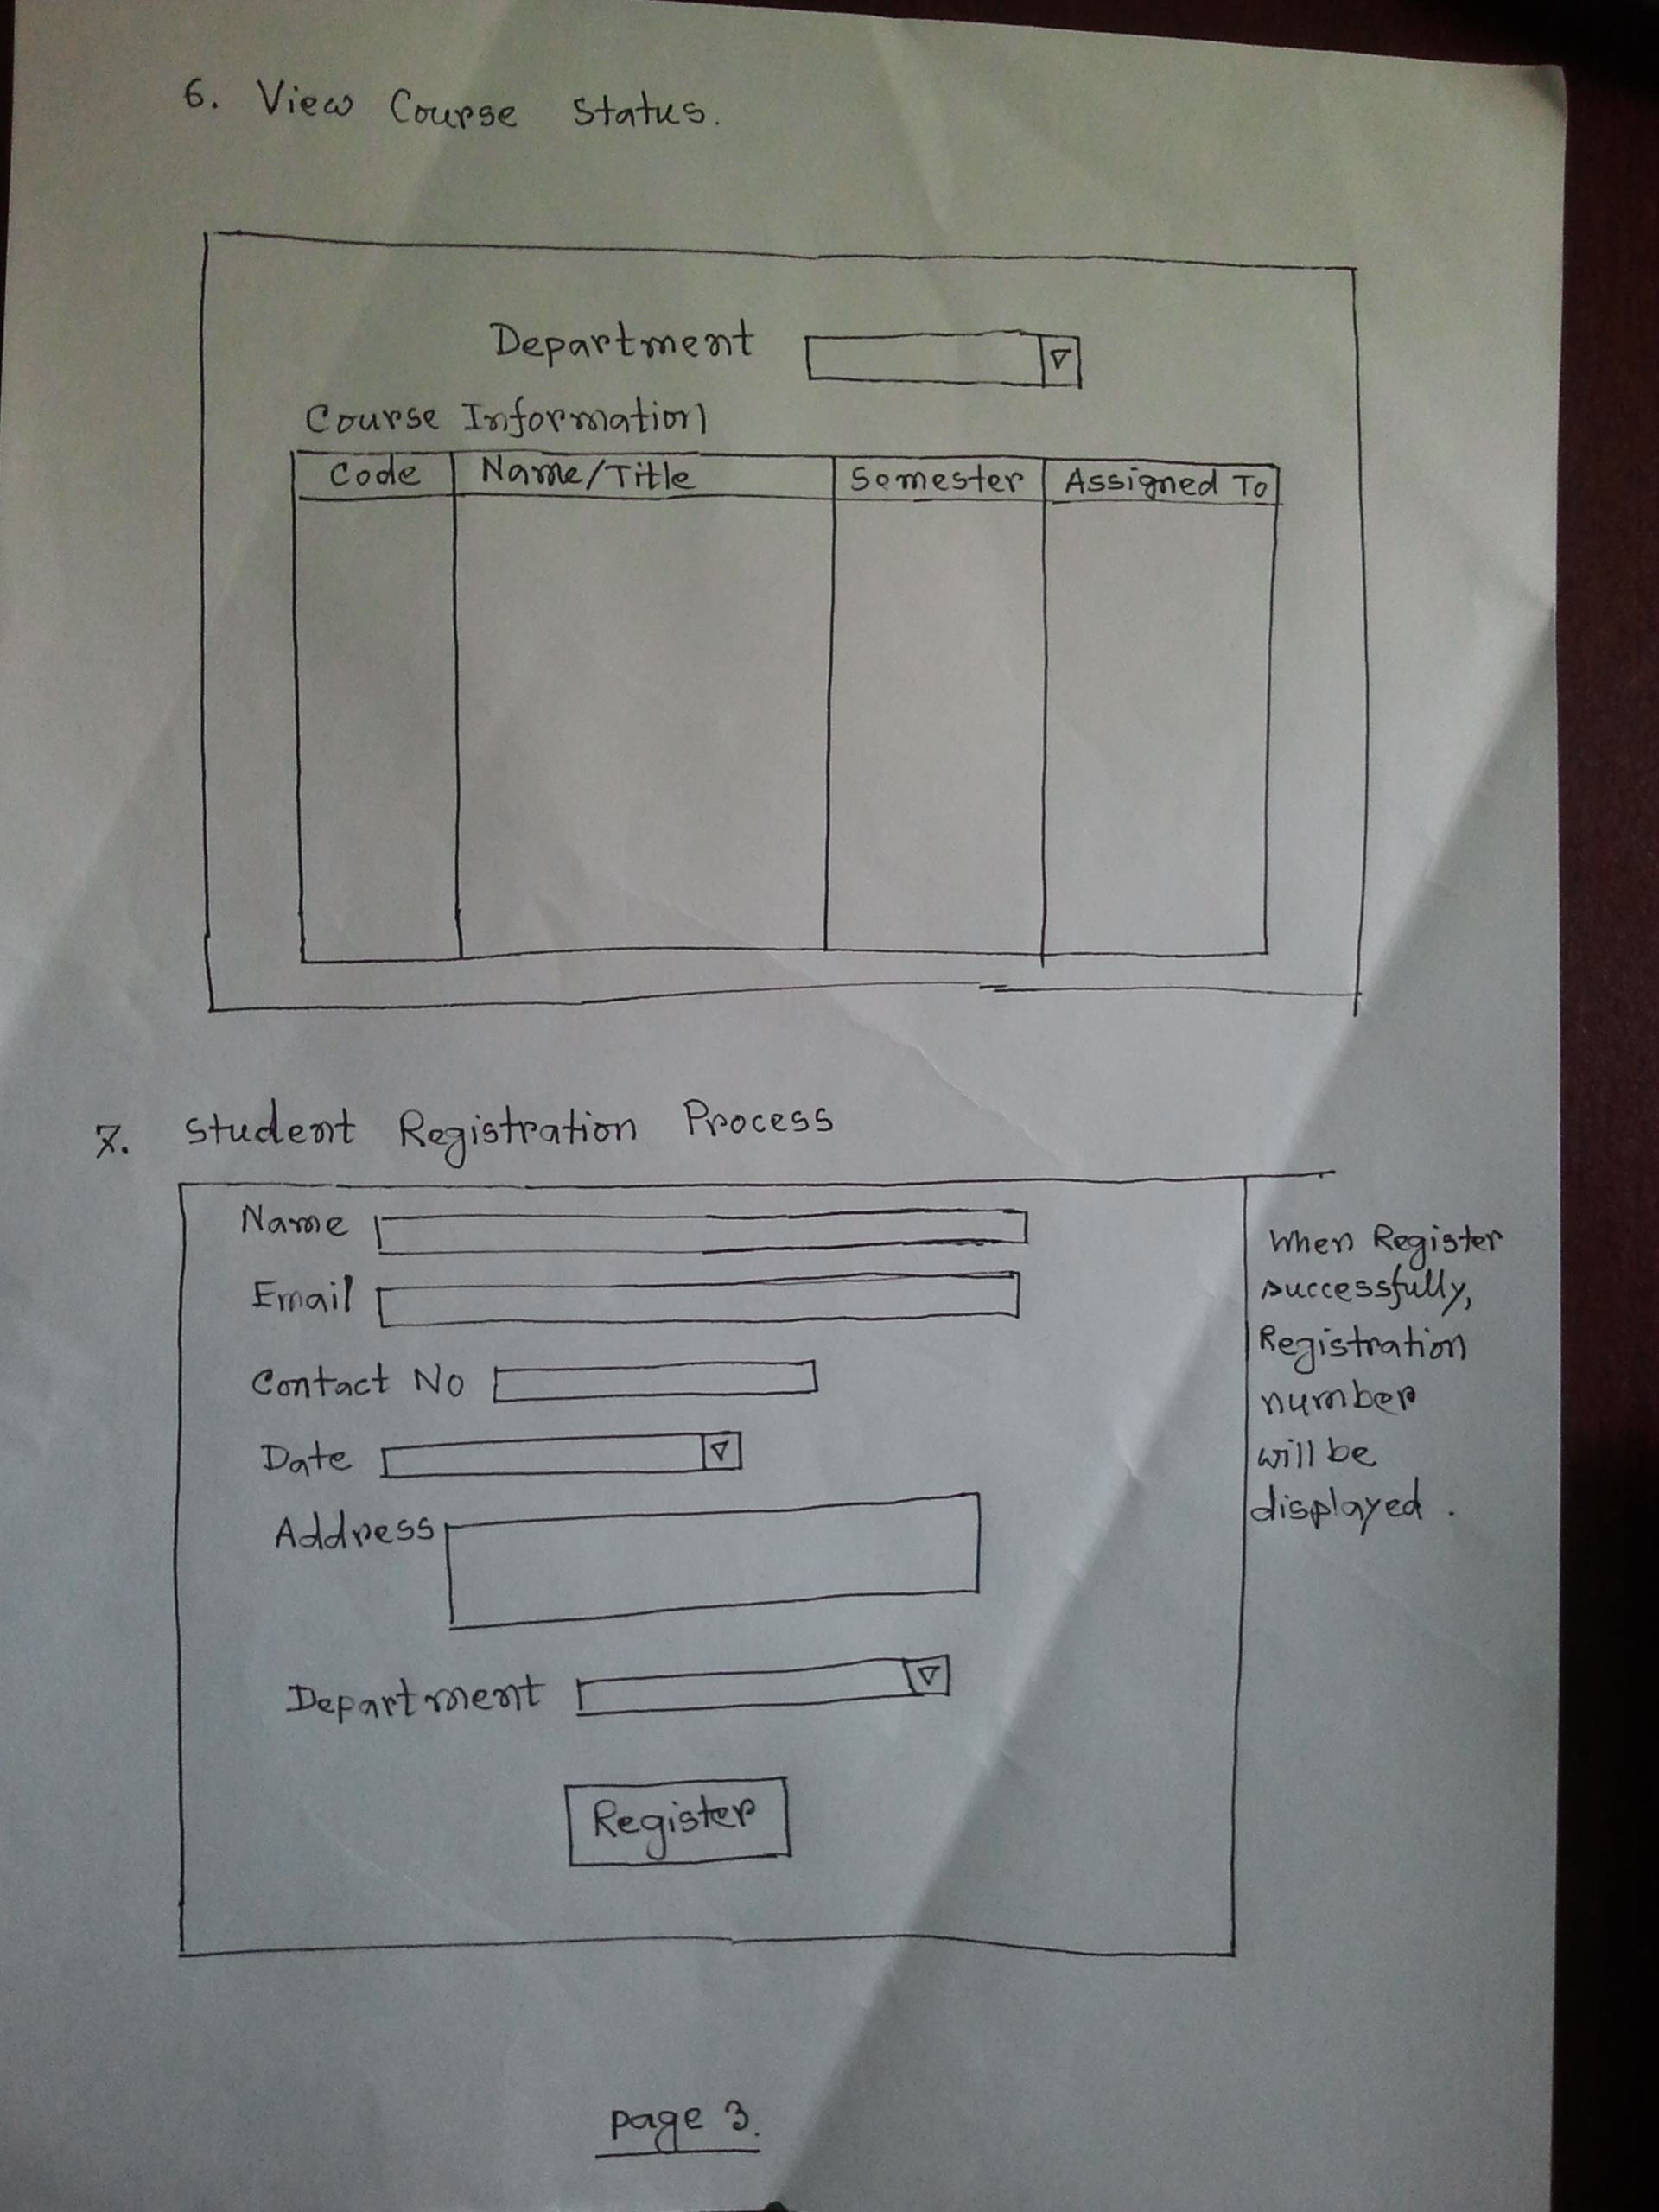 6. View Course Status.
Department
Course Information
Code Name/Title Semester Assigned To
7. Student Registration Process
Name
Email
Contact No
Date
Address
Department
Register
When Register
successfully,
Registration
number
will be
displayed.
page 3.